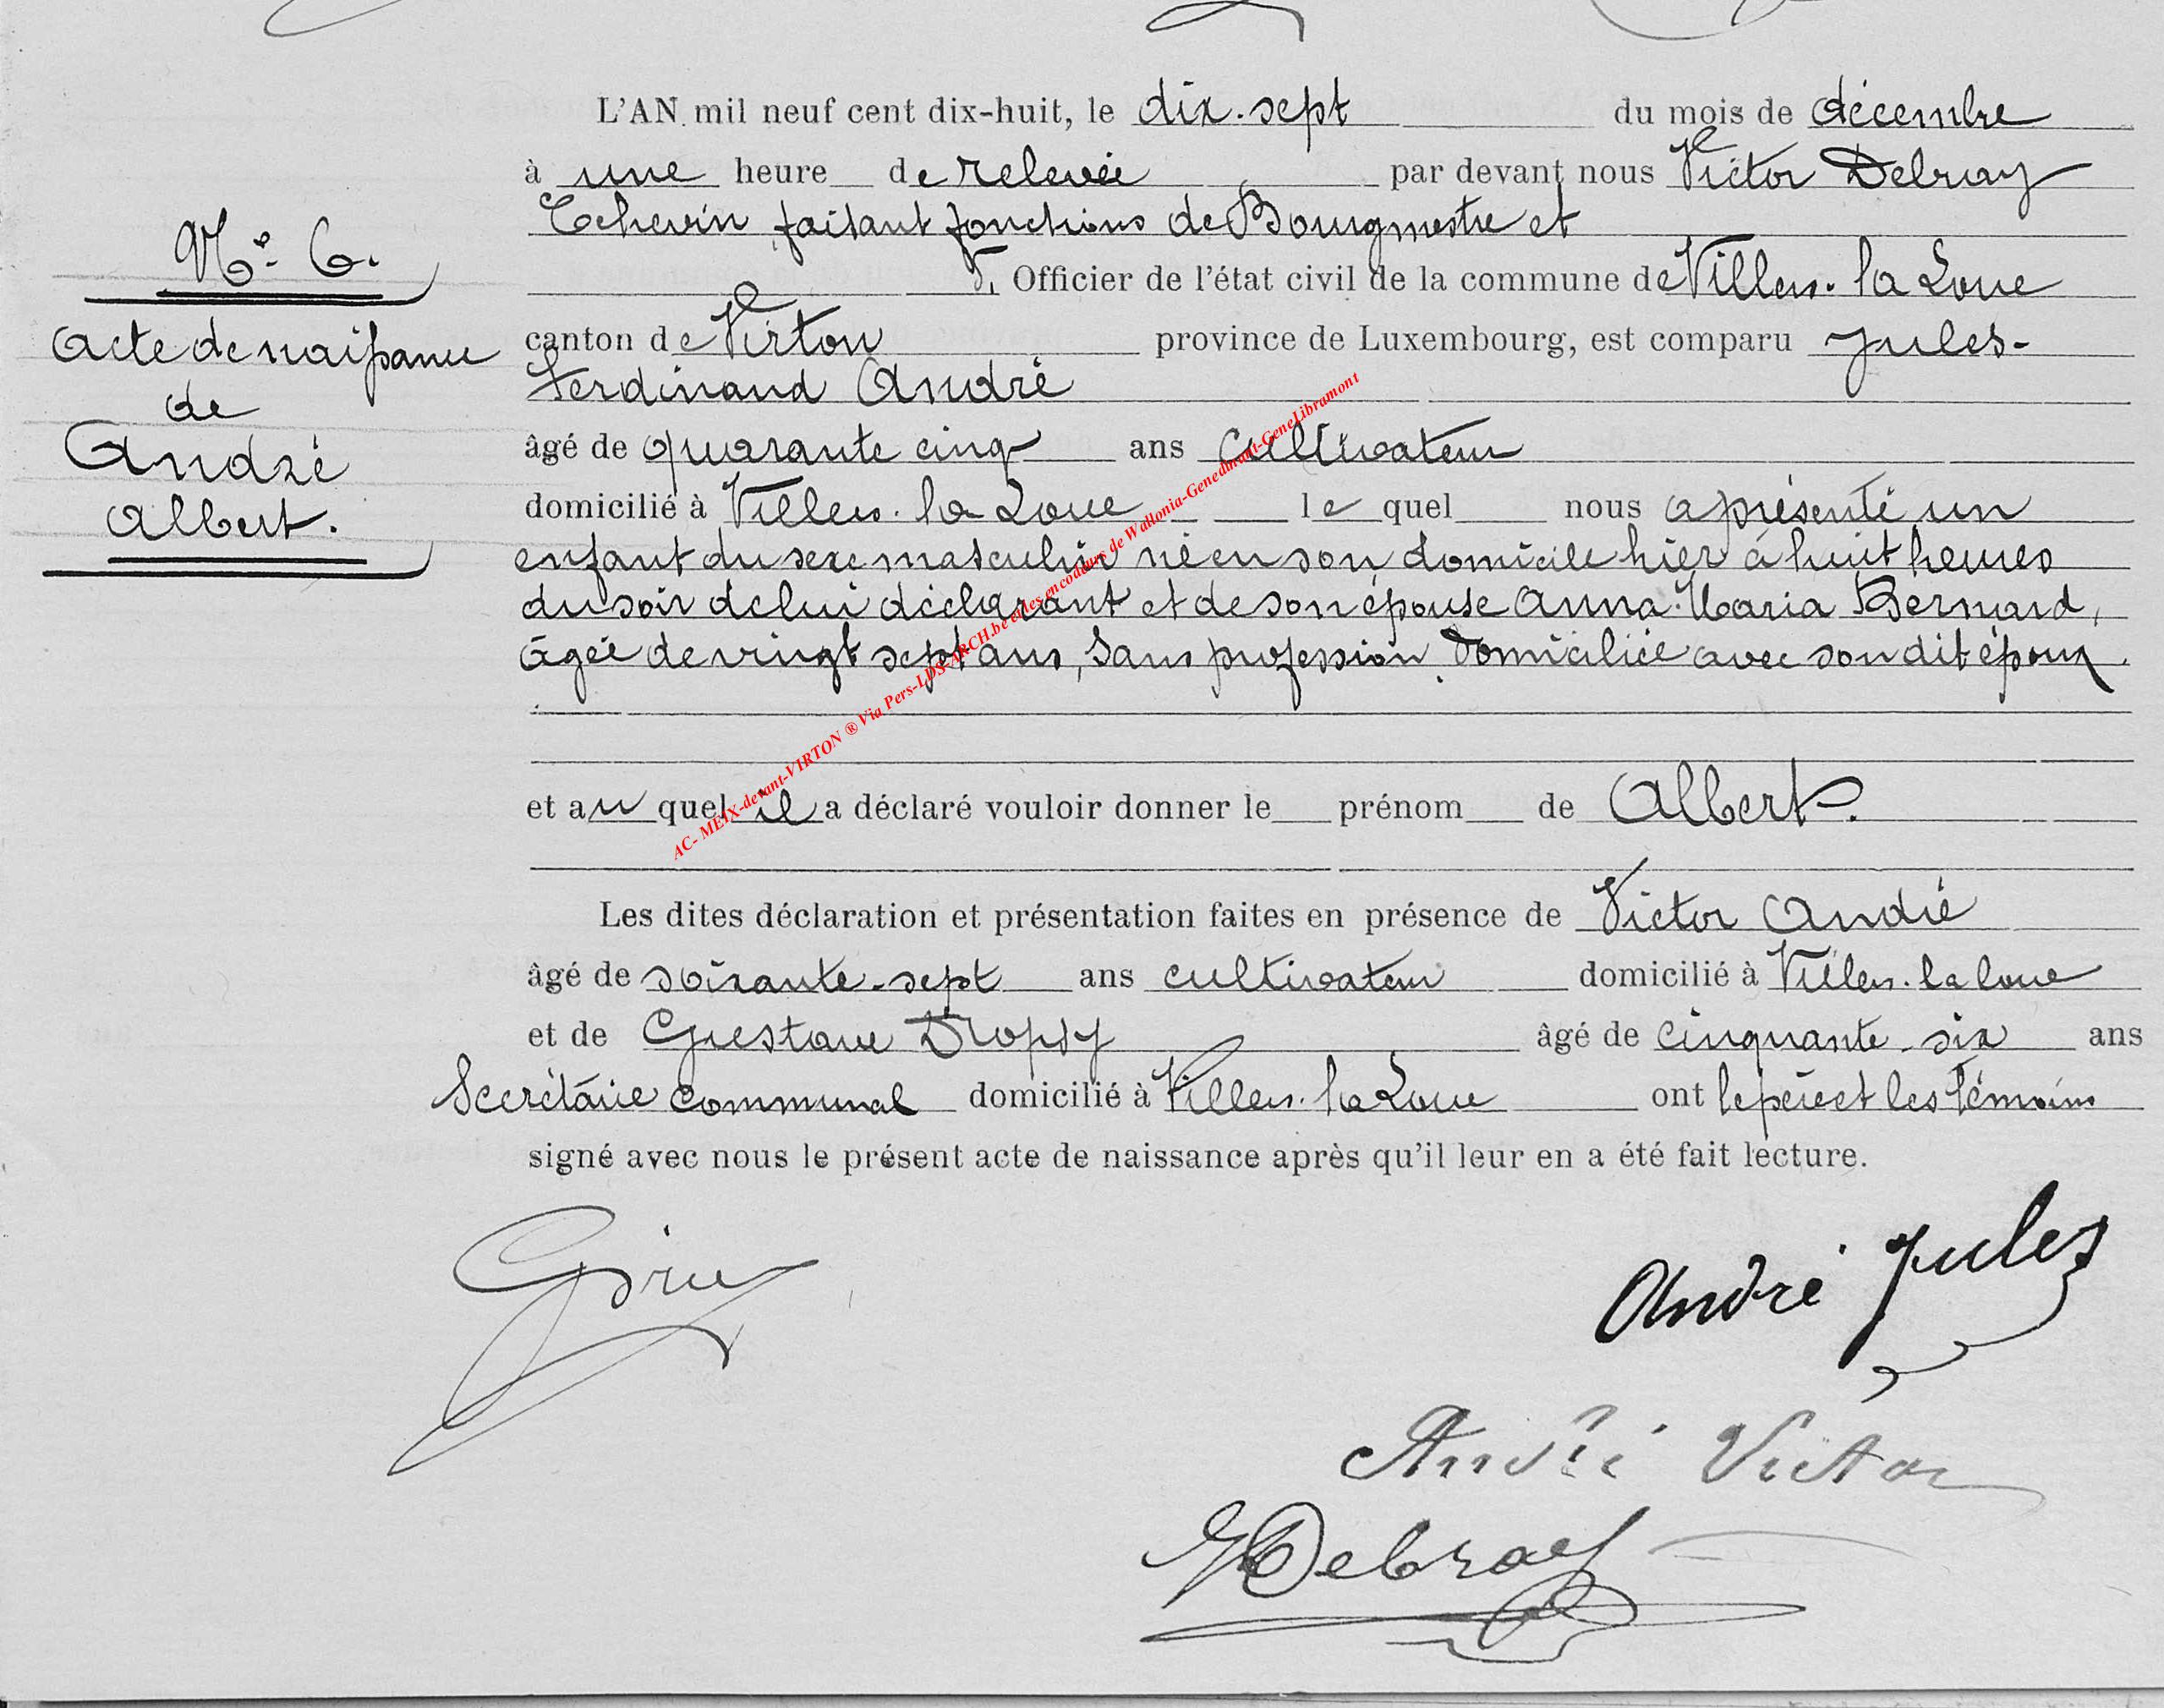 L'AN mil neuf cent dix-huit, le dix-sept du mois de décembre
à une heure de relevée par devant nous Victor Debray
Echevin faisant fonctions de Bourgmestre et
Officier de l'état civil de la commune de Villers-la-Loue
canton de Virton province de Luxembourg, est comparu Jules-
Ferdinand André
âgé de quarante cinq ans cultivateur
domicilié à Villers-la-Loue le quel nous a présenté un
enfant du sexe masculin né en son domicile hier à huit heures
du soir de lui déclarant et de son épouse Anna-Maria Bernard,
âgée de vingt sept ans, sans profession, domiciliée avec son dit époux.
et au quel il a déclaré vouloir donner le prénom de Albert.
Les dites déclaration et présentation faites en présence de Victor André
âgé de soixante-sept ans cultivateur domicilié à Villers-la-loue
et de Gustave Dropsy âgé de cinquante-six ans
Secrétaire communal domicilié à Villers-la-Loue ont le père et les témoins
signé avec nous le présent acte de naissance après qu'il leur en a été fait lecture.
N° 6.
Acte de naissance
de
André
Albert.
AC- MEIX-devant-VIRTON ® Via Pers-LDS-ARCH.be et les encodeurs de Wallonia-Genedinant-GeneLibramont
André Jules
André Victor
Debray